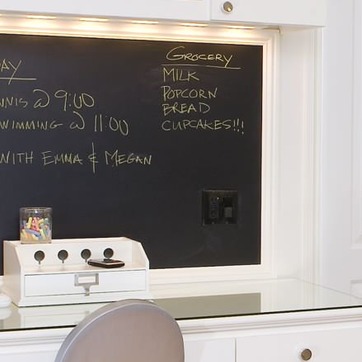 AY
NNIS @ 9:00
WIMMING @ 11:00
WITH EMMA & MEGAN
GROCERY
MILK
POPCORN
BREAD
CUPCAKES!!!